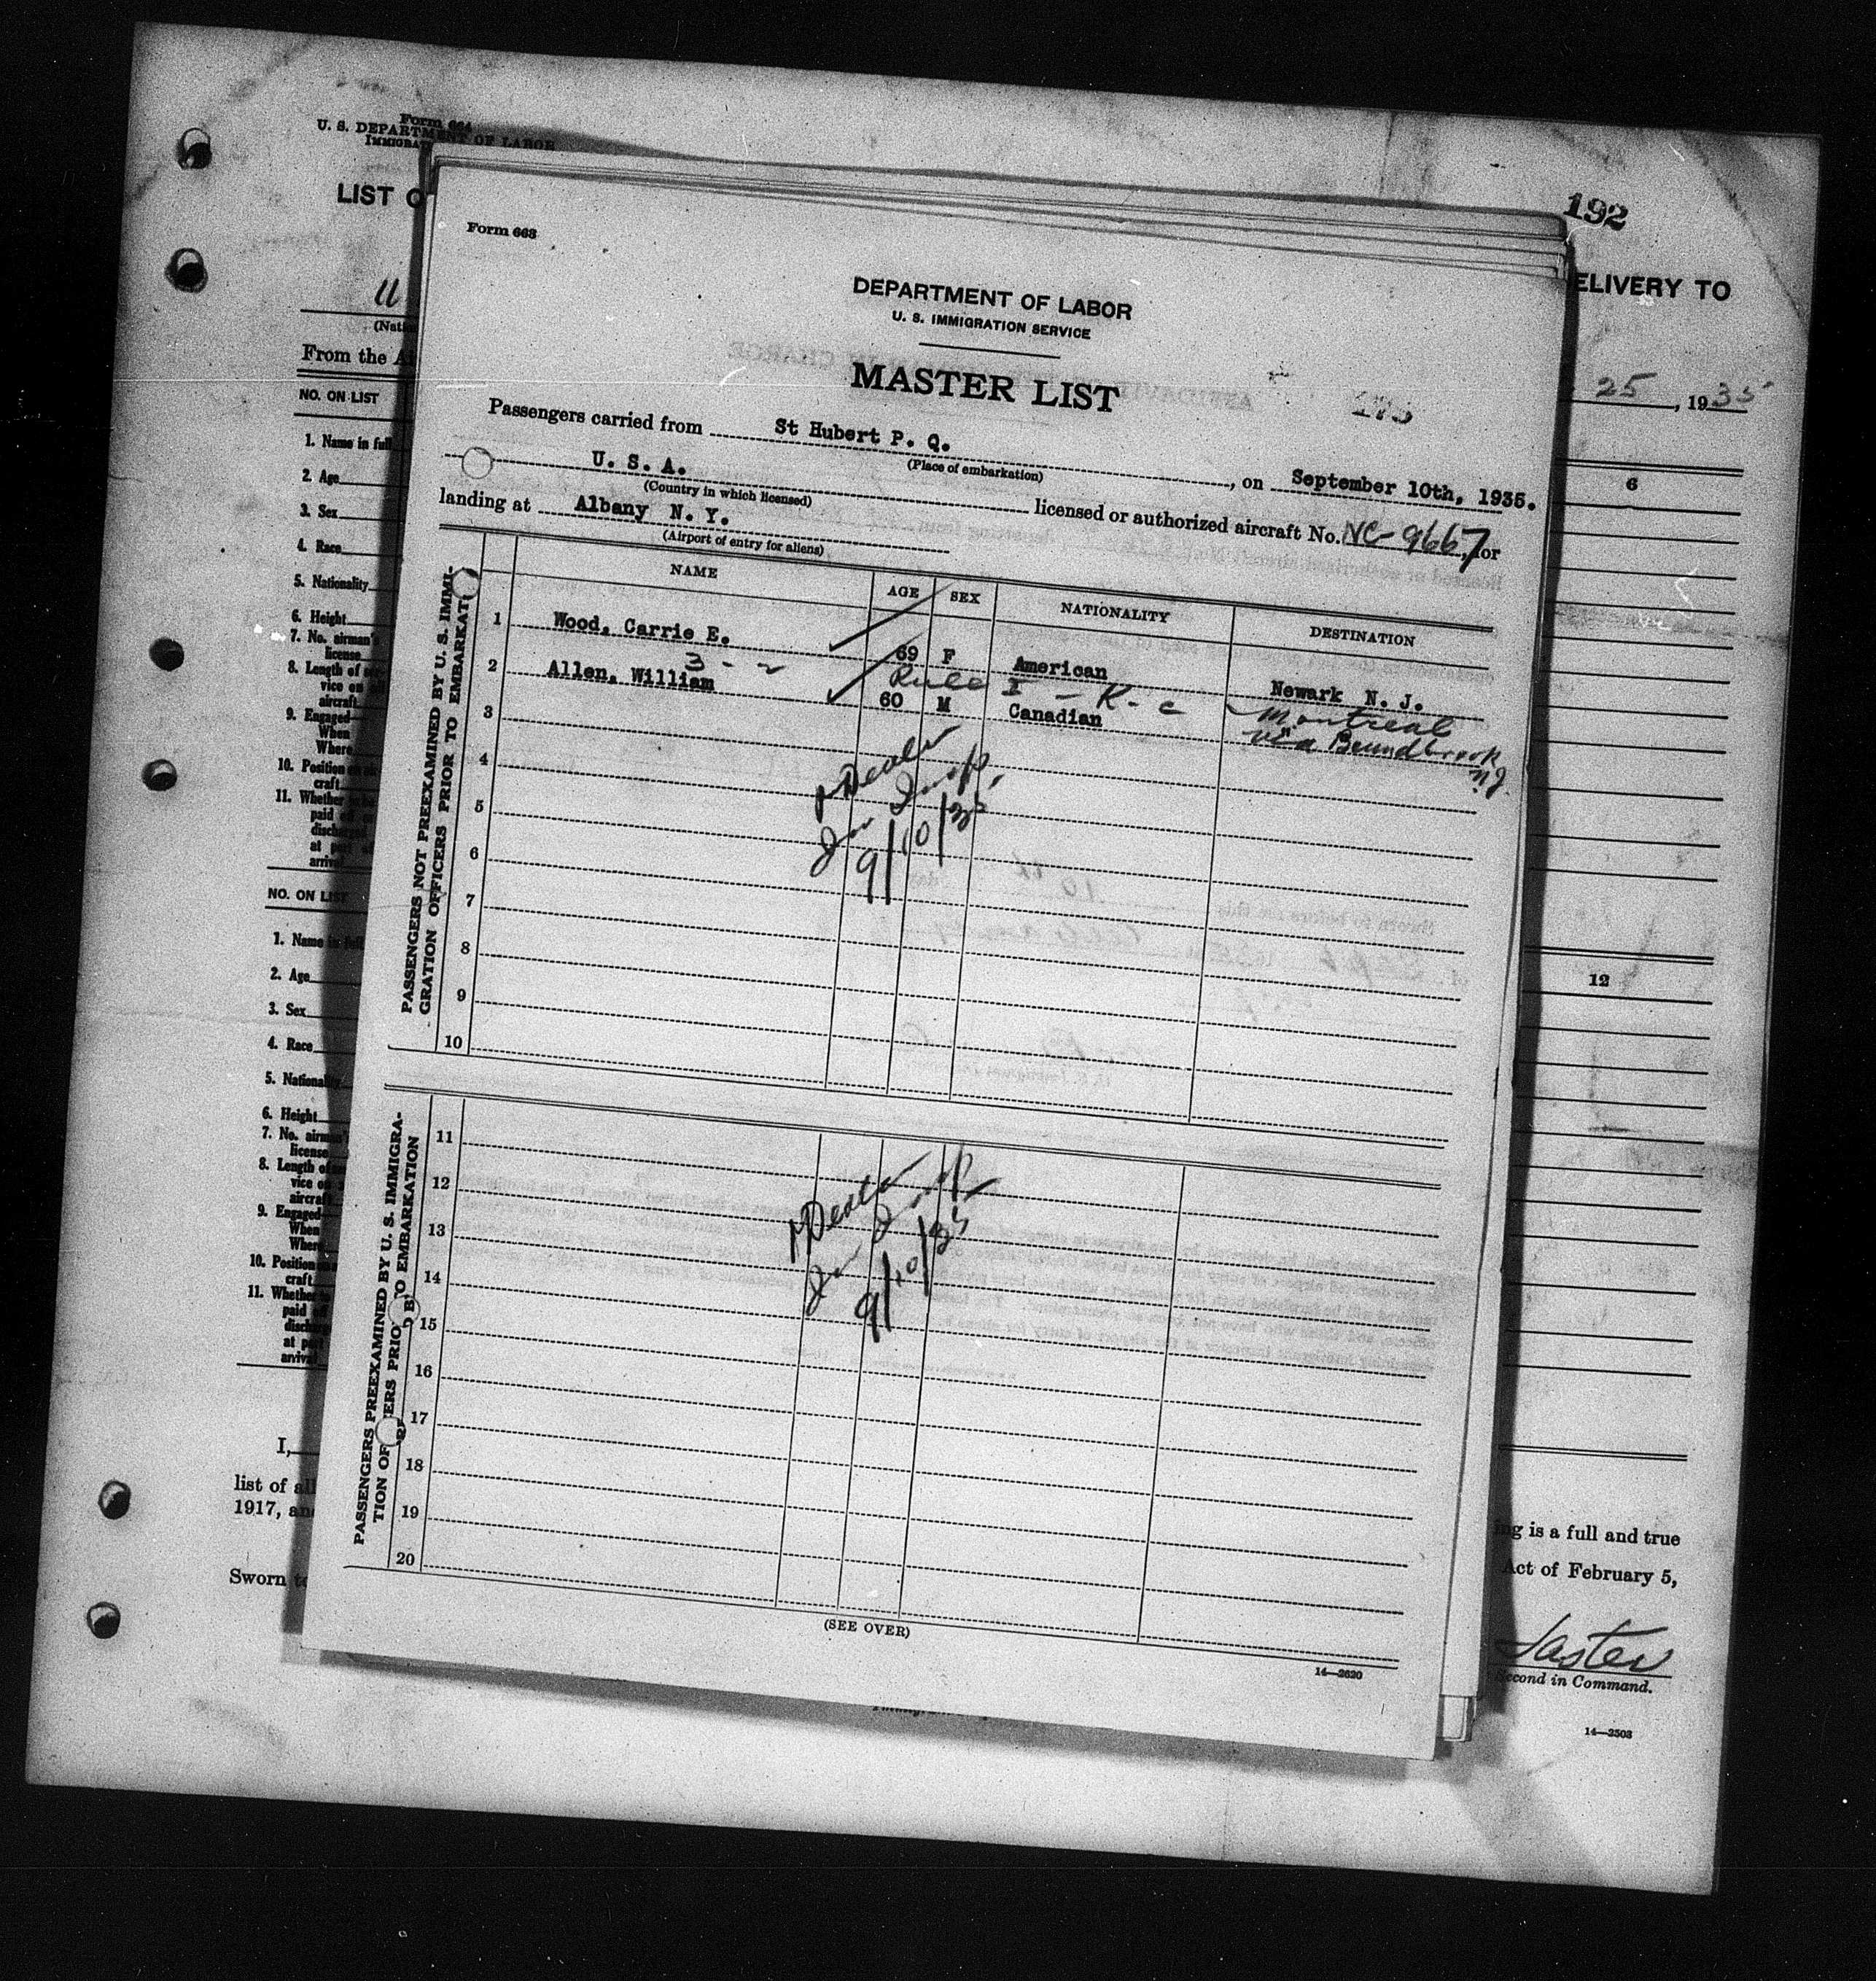 Form 664
U. S. DEPARTMENT OF LABOR
LIST O
192
ELIVERY TO
(Nati
From the Ai
25, 1935
NO. ON LIST
6
1. Name in full
2. Age
3. Sex
4. Race
5. Nationality
6. Height
7. No. airman's
license
8. Length of ser-
vice on
aircraft
9. Engaged—
When
Where
10. Position on air-
craft
11. Whether to be
paid off or
discharged
at port of
arrival
NO. ON LIST
12
1. Name in full
2. Age
3. Sex
4. Race
5. Nationality
6. Height
7. No. airman's
license
8. Length of
vice on
aircraft
9. Engaged—
When
Where
10. Position on
craft
11. Whether
paid
at
arrival
I,
list of all
1917, and
Sworn to
ing is a full and true
Act of February 5,
Second in Command.
14—2503
Form 663
DEPARTMENT OF LABOR
U. S. IMMIGRATION SERVICE
MASTER LIST
Passengers carried from St Hubert P. Q., on September 10th, 1935.
(Place of embarkation)
U. S. A. licensed or authorized aircraft No. NC-9667, for
(Country in which licensed)
landing at Albany N. Y.
(Airport of entry for aliens)
NAME AGE SEX NATIONALITY DESTINATION
PASSENGERS NOT PREEXAMINED BY U. S. IMMI-
GRATION OFFICERS PRIOR TO EMBARKATI
1 Wood, Carrie E. 69 F American Newark N. J.
3 - 2 Rule I - K - c
2 Allen, William 60 M Canadian Montreal
via Boundbrook
NJ.
3
4
5
6
9/10/35
7
8
9
10
PASSENGERS PREEXAMINED BY U. S. IMMIGRA-
TION OF ERS PRIO O EMBARKATION
11
12
13
14
9/10/35
15
16
17
18
19
20
(SEE OVER)
14—2620